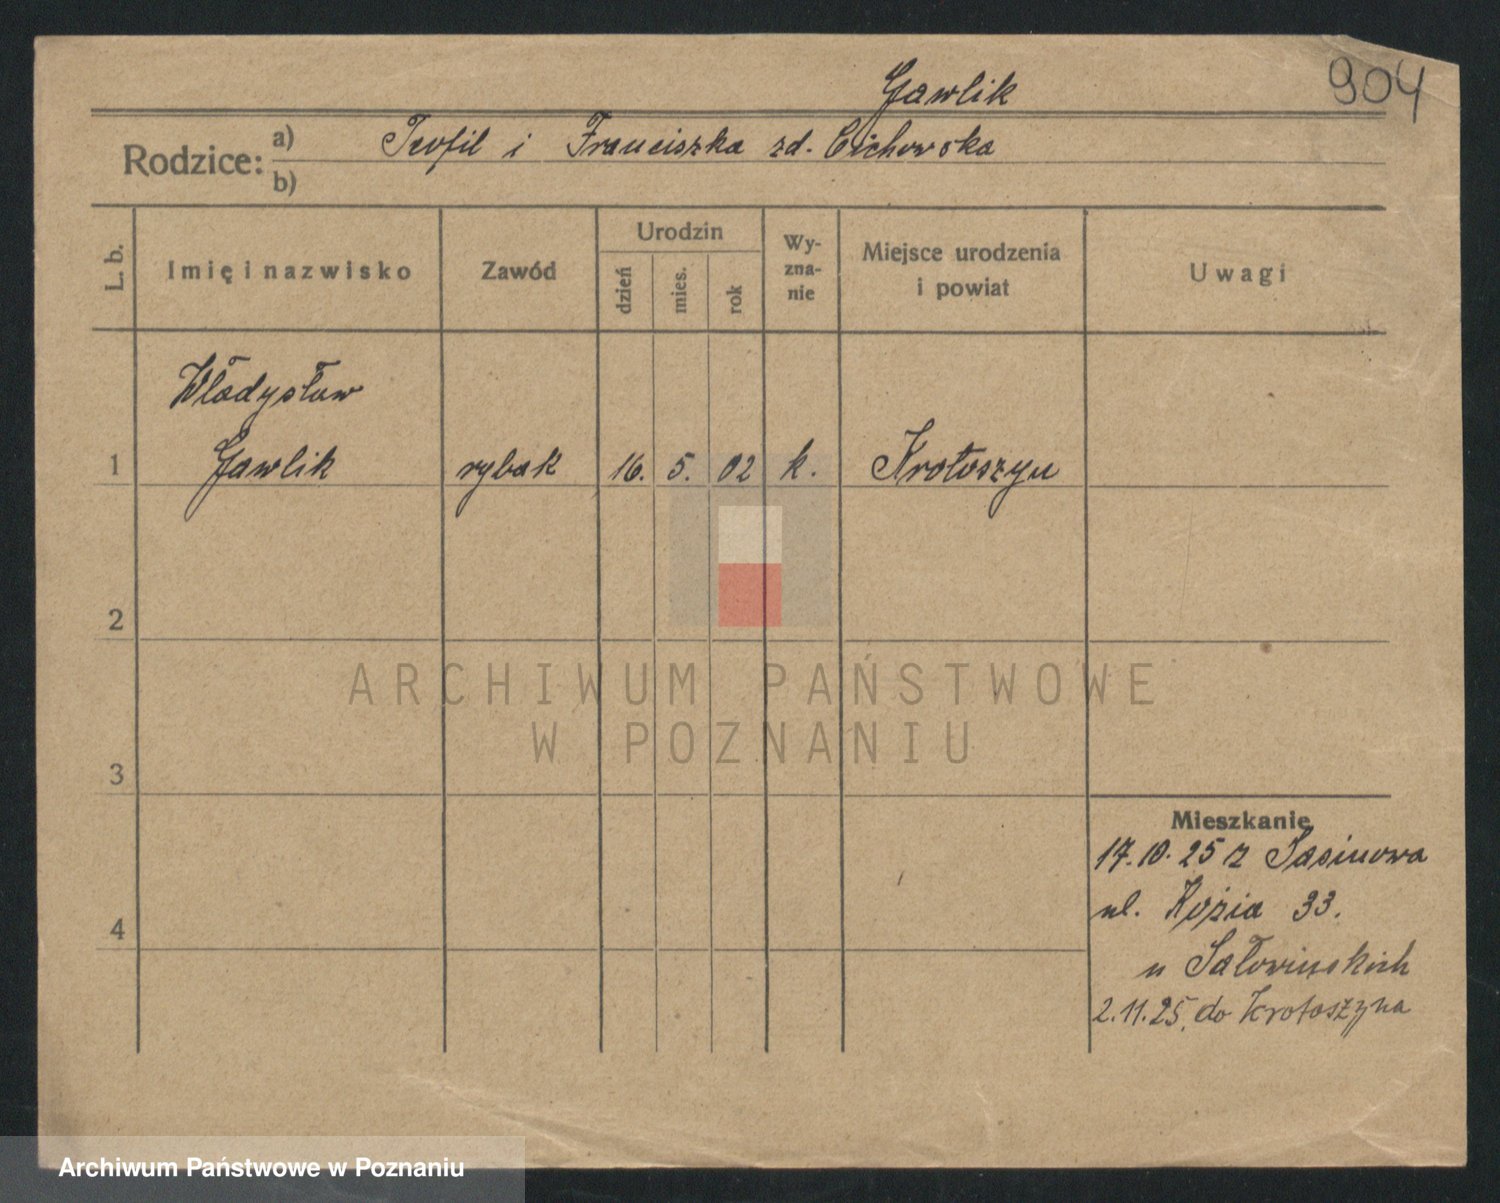 Gawlik
904
Rodzice: a) Teofil i Franciszka zd. Cichowska
b)
L. b.
Imię i nazwisko
Zawód
Urodzin
dzień
mies.
rok
Wy-
zna-
nie
Miejsce urodzenia
i powiat
Uwagi
Władysław
1 Gawlik rybak 16. 5. 02 k. Krotoszyn
2
ARCHIWUM PAŃSTWOWE
W POZNANIU
3
Mieszkanie
17.10.25 z Sasinowa
ul. Kozia 33.
4
u Sałowinskich
2.11.25. do Krotoszyna
Archiwum Państwowe w Poznaniu